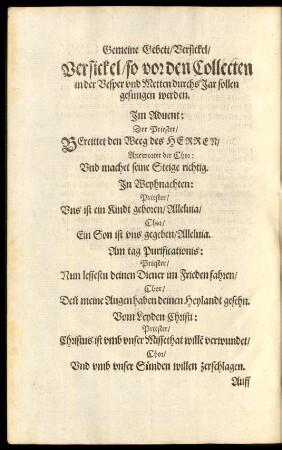 Gemeine Gebett/Versickel/
Versickel/so vor den Collecten
in der Vesper vnd Metten durchs Jar sollen
gesungen werden.
Im Aduent:
Der Priester/
BEreittet den Weeg des HERREN/
Antworter der Chor:
Vnd machet seine Steige richtig.
In Weyhnachten:
Priester/
Vns ist ein Kindt geboren/Alleluia/
Chor/
Ein Son ist vns gegeben/Alleluia.
Am tag Purificationis:
Priester/
Nun lessestu deinen Diener im Frieden fahren/
Chor/
Deñ meine Augen haben deinen Heylandt gesehn.
Vom Leyden Christi:
Priester/
Christus ist vmb vnser Missethat willẽ verwundet/
Chor/
Vnd vmb vnser Sünden willen zerschlagen.
Auff